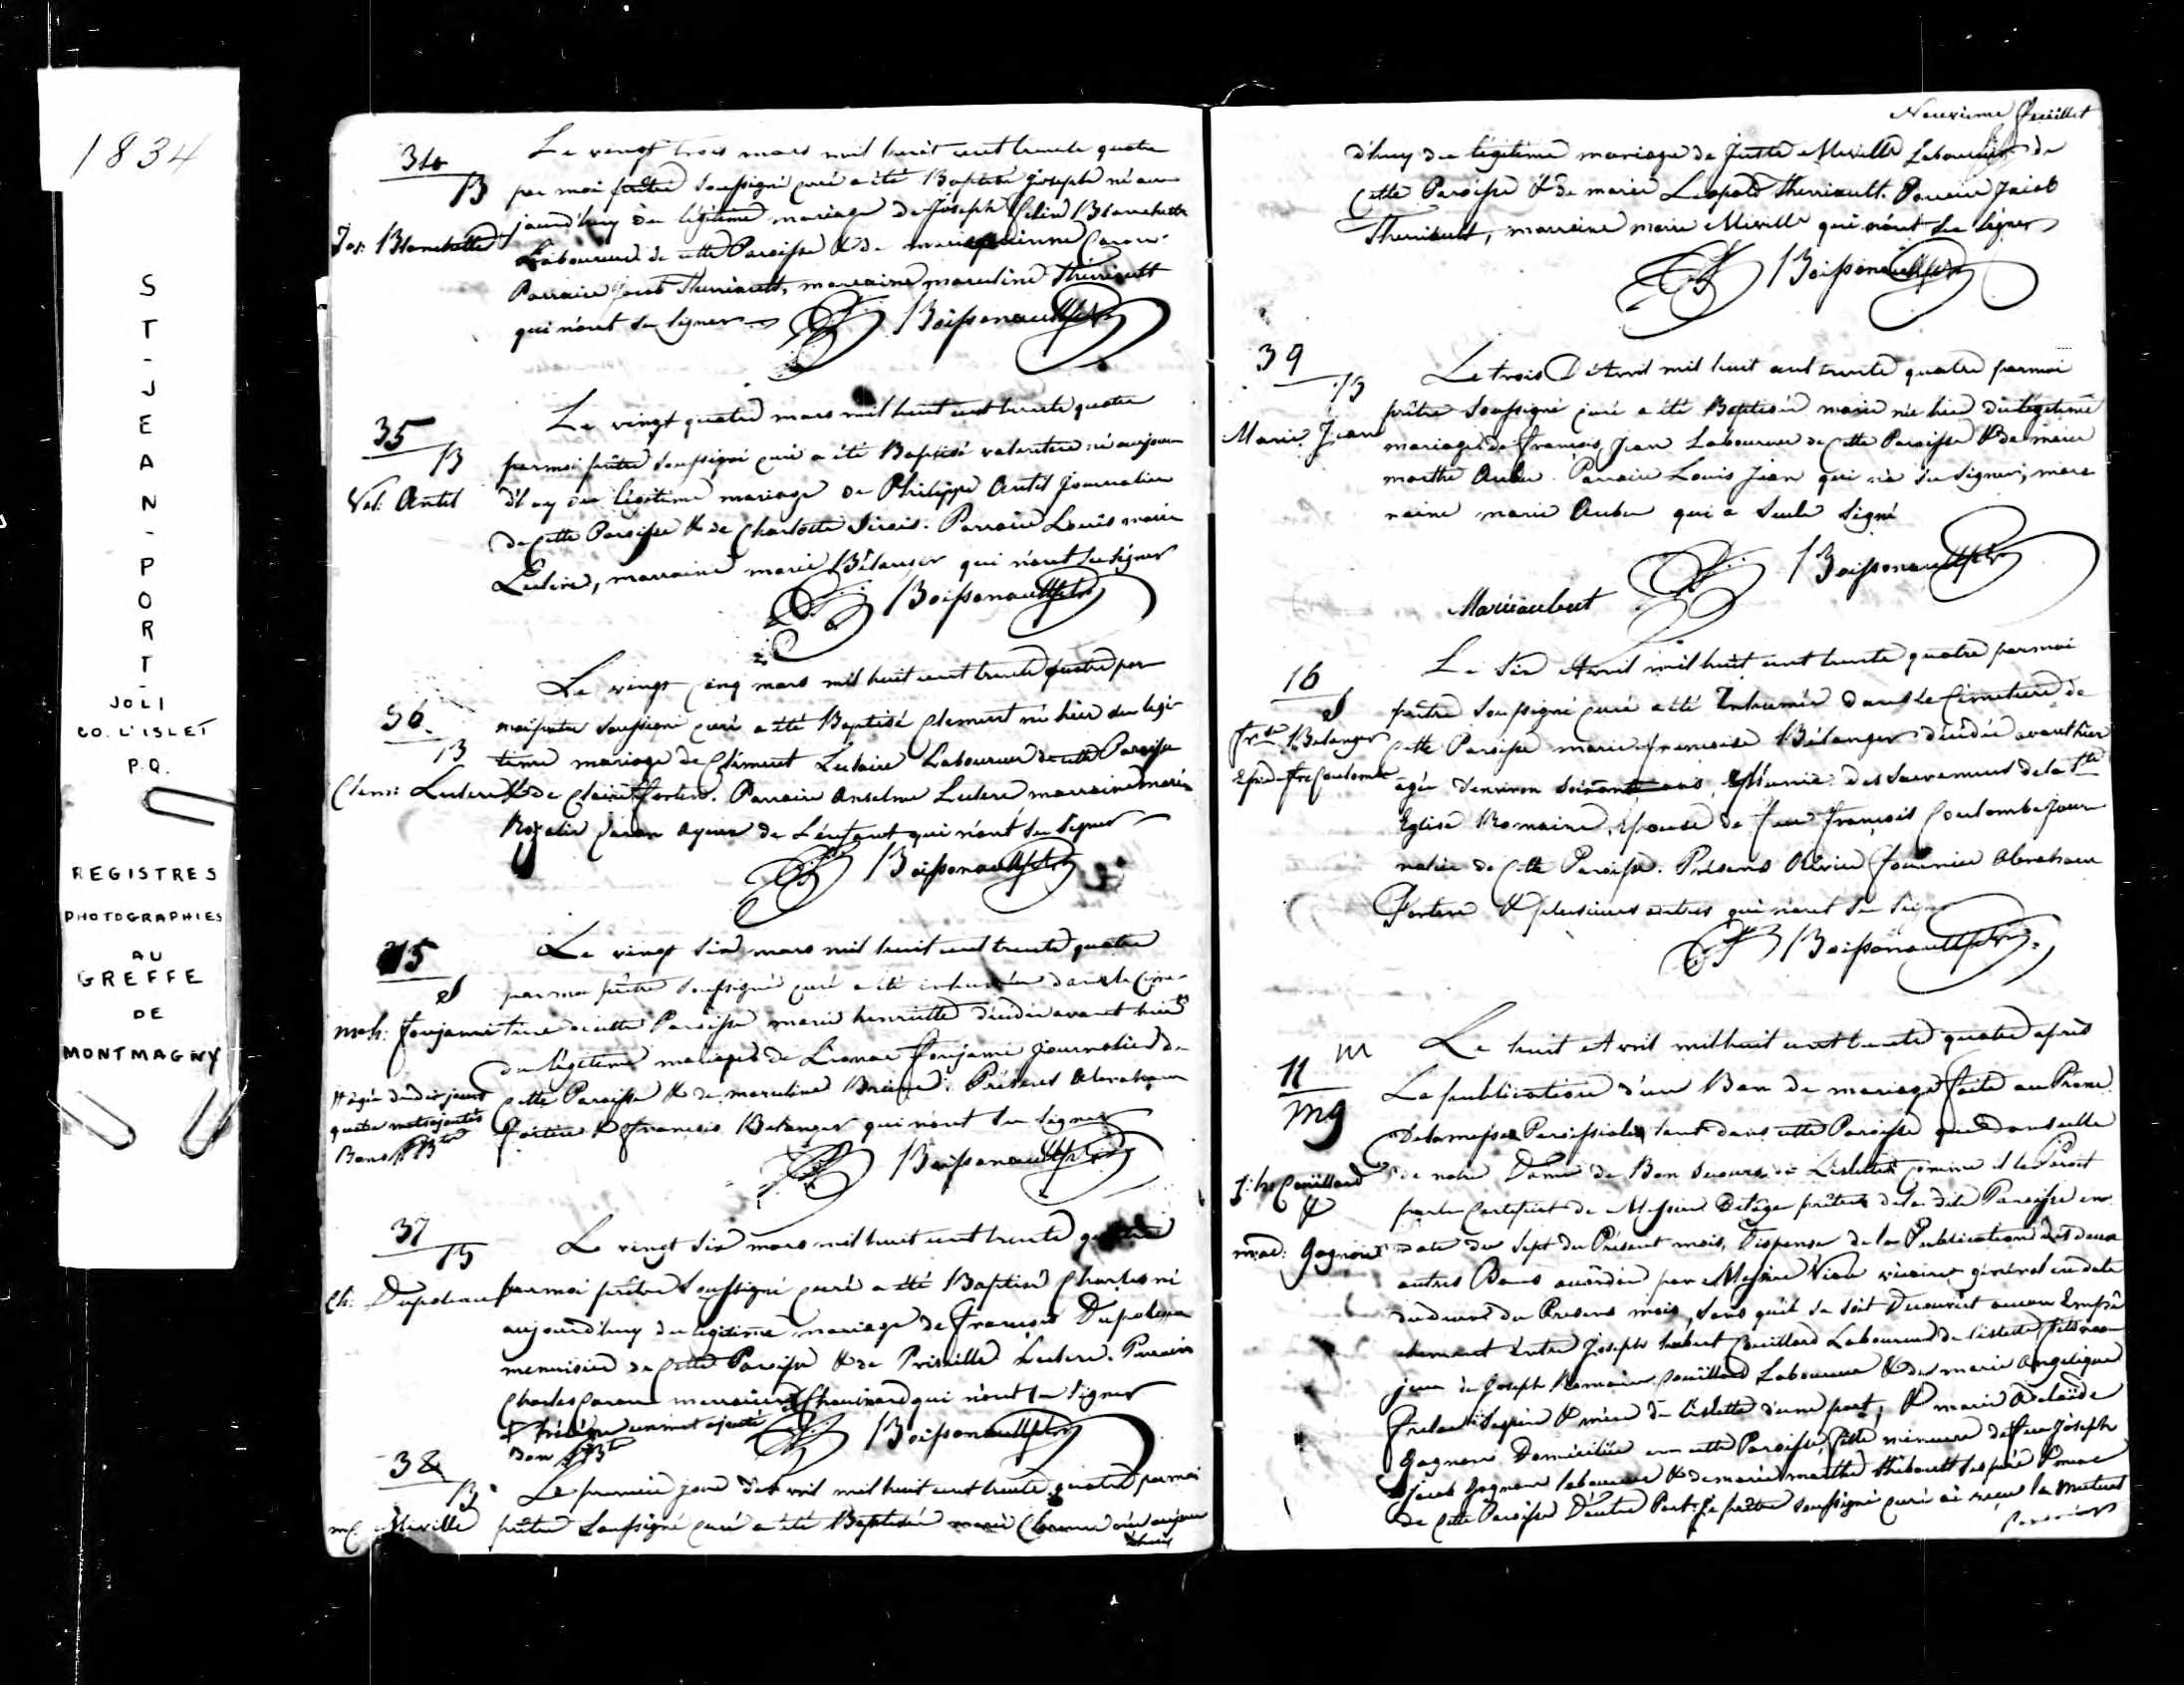 1834
ST-JEAN-PORT-
JOLI
CO. L'ISLET
P.Q.
REGISTRES
PHOTOGRAPHIES
AU
GREFFE
DE
MONTMAGNY
34
B
Jos: Blanchette
Le vingt trois mars mil huit cent trente quatre
par moi prêtre soussigné curé a été Baptisé Joseph né au
jourd'huy du légitime mariage de Joseph Blanchette
Laboureur de cette Paroisse & de Caron
Parrain Jacob Therriault, marraine marceline Therriault
qui n'ont su signer
Boissonault ptre
35
B
Val: Antil
Le vingt quatre mars mil huit cent trente quatre
par moi prêtre soussigné curé a été Baptisé né aujour
d'huy du légitime mariage de Philippe Antil Journalier
de cette Paroisse & de Charlotte Sirois. Parrain Louis marie
Leclerc, marraine marie Bélanger qui n'ont su signer
Boissonault ptre
36
B
Clem: Leclerc
Le vingt cinq mars mil huit cent trente quatre par
moi prêtre soussigné curé a été Baptisé Clement né hier du legi-
time mariage de Clément Leclaire Laboureur de cette Paroisse
& de Claire Fortin. Parrain Anselme Leclerc marraine marie
Rozalie Caron Ayeux de L'enfant qui n'ont su signer
Boissonault ptre
15
S
m. h: Forjamie
Le vingt six mars mil huit cent trente quatre
par moi prêtre soussigné curé a été inhumée dans le Cime-
tiere de cette Paroisse marie henriette décédée avant hier
du légitime mariage de Forjamie Journalier de
cette Paroisse & de marceline . Présents Abraham
Fortin & François Belanger qui n'ont su signer
# agée de dix jours
quatre mots ajoutés
Bons
Boissonault ptre
37
B
Ch: Dupoleau
Le vingt six mars mil huit cent trente quatre
par moi prêtre soussigné curé a été Baptisé Charles né
aujourd'huy du légitime mariage de François
menuisier de cette Paroisse & de Priscille Leclerc. Parrain
Charles Caron marraine Chouinard qui n'ont su signer
un mot ajouté
Bon
Boissonault ptre
38
B
m. C. Miville
Le premier jour d'Avril mil huit cent trente quatre par moi
prêtre soussigné curé a été Baptisée marie née aujour
d'huy
Neuvieme feuillet
d'huy du légitime mariage de Juste Miville Laboureur de
cette Paroisse & de marie Therriault. Parrain Jacob
Therriault, marraine marie Miville qui n'ont su signer
Boissonault ptre
39
B
Marie Jean
Le trois d'Avril mil huit cent trente quatre par moi
prêtre soussigné curé a été Baptisée marie née hier du légitime
mariage de François Jean Laboureur de cette Paroisse & de marie
marthe Aubu. Parrain Louis Jean qui n'a su signer, mar-
raine marie Aubu qui a seule signé
Marie aubut
Boissonault ptre
16
S
Frse Belanger
Epse de Frs Coulombe
Le six Avril mil huit cent trente quatre par moi
prêtre soussigné curé a été Inhumée dans le Cimetiere de
cette Paroisse marie françoise Bélanger décédée avant hier
agée d'environ soixante ans, munie des sacremens de la Ste
Eglise Romaine, épouse de feu François Coulombe Jour
nalier de cette Paroisse. Présens Olivier Fournier Abraham
Fortin & plusieurs autres qui n'ont su signer
Boissonault ptre
11
M
mg
J: h: Couillard
&
m. ad: Gagnon
Le huit Avril mil huit cent trente quatre après
La publication d'un Ban de mariage faite au Prône
de la messe Paroissiale tant dans cette Paroisse que dans celle
de notre Dame de Bon Secours de L'islette comme il le Paroît
par le Certificat de Messire Delage prêtre de la dite Paroisse en
date du sept du Présent mois, Dispense de la Publication des deux
autres Bans accordée par Messire Viau vicaire général en date
du deux du Présent mois, sans qu'il se soit Découvert aucun Empê
chement entre Joseph hubert Couillard Laboureur de l'islette fils ma
jeur de Joseph Romain Couillard Laboureur & de marie Angelique
ses père & mère de L'islette d'une part, & marie Adelaïde
Gagnon Domiciliée en cette Paroisse, fille mineure de feu Joseph
Jacob Gagnon laboureur & de marie marthe thibault ses père & mère
de cette Paroisse D'autre Part. Je prêtre soussigné curé ai reçu le mutuel